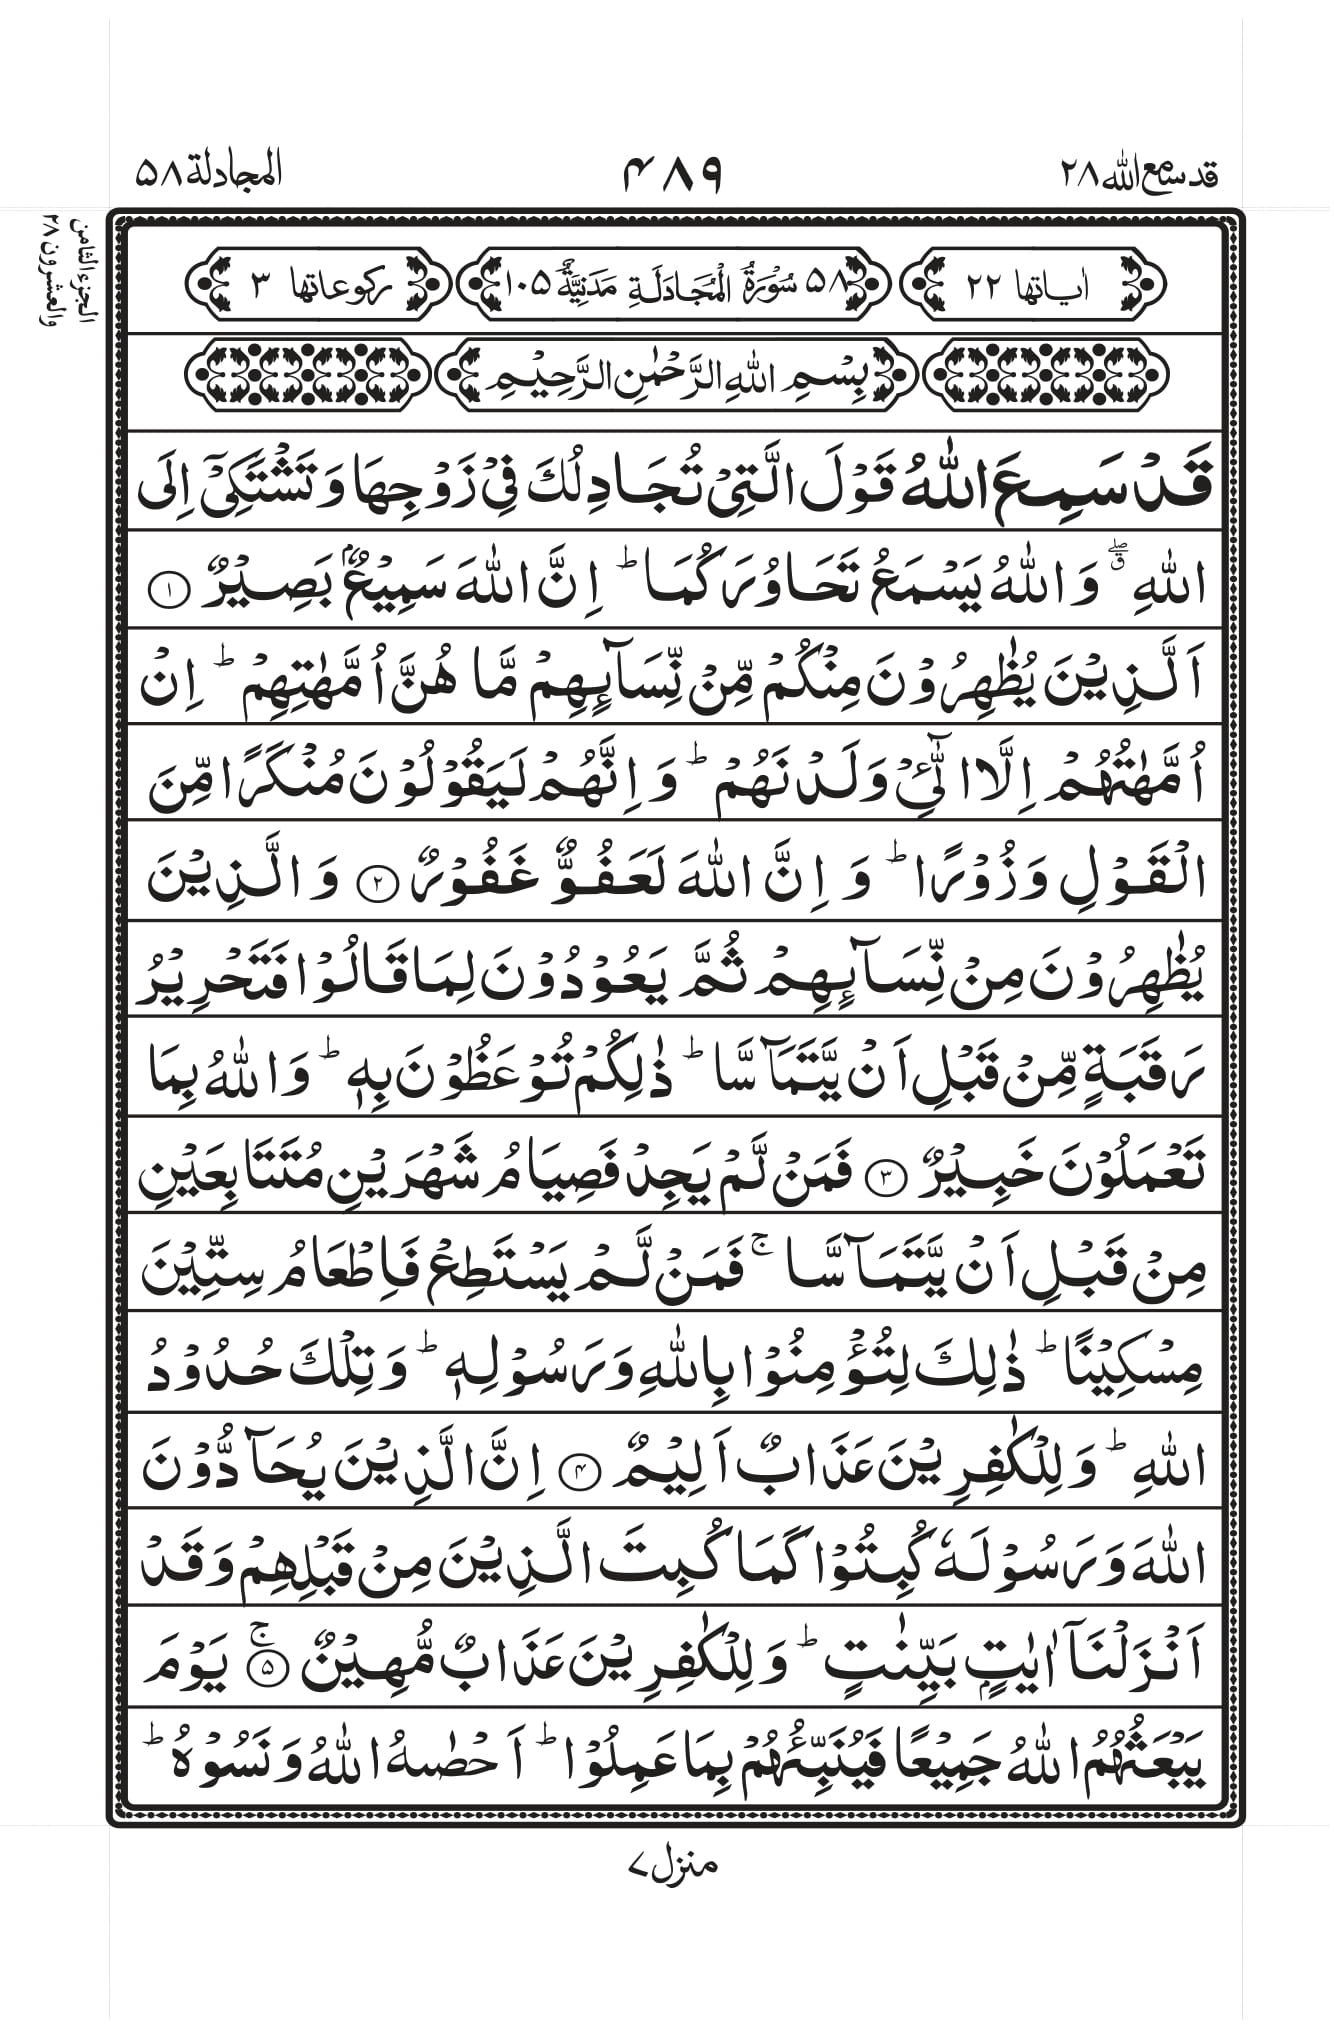 قد سمع الله ۲۸
۴۸۹
المجادلة ۵۸
الجزء الثامن
والعشرون ۲۸
اٰياتها ۲۲
۵۸ سُوْرَةُ الْمُجَادَلَةِ مَدَنِيَّةٌ ۱۰۵
ركوعاتها ۳
بِسْمِ اللّٰهِ الرَّحْمٰنِ الرَّحِيْمِ
قَدْ سَمِعَ اللّٰهُ قَوْلَ الَّتِيْ تُجَادِلُكَ فِيْ زَوْجِهَا وَ تَشْتَكِيْۤ اِلَى
اللّٰهِ ۖۗ وَ اللّٰهُ يَسْمَعُ تَحَاوُرَكُمَا ؕ اِنَّ اللّٰهَ سَمِيْعٌۢ بَصِيْرٌ ۱
اَلَّذِيْنَ يُظٰهِرُوْنَ مِنْكُمْ مِّنْ نِّسَآىِٕهِمْ مَّا هُنَّ اُمَّهٰتِهِمْ ؕ اِنْ
اُمَّهٰتُهُمْ اِلَّا الّٰٓـِٔيْ وَلَدْنَهُمْ ؕ وَ اِنَّهُمْ لَيَقُوْلُوْنَ مُنْكَرًا مِّنَ
الْقَوْلِ وَ زُوْرًا ؕ وَ اِنَّ اللّٰهَ لَعَفُوٌّ غَفُوْرٌ ۲ وَ الَّذِيْنَ
يُظٰهِرُوْنَ مِنْ نِّسَآىِٕهِمْ ثُمَّ يَعُوْدُوْنَ لِمَا قَالُوْا فَتَحْرِيْرُ
رَقَبَةٍ مِّنْ قَبْلِ اَنْ يَّتَمَآسَّا ؕ ذٰلِكُمْ تُوْعَظُوْنَ بِهٖ ؕ وَ اللّٰهُ بِمَا
تَعْمَلُوْنَ خَبِيْرٌ ۳ فَمَنْ لَّمْ يَجِدْ فَصِيَامُ شَهْرَيْنِ مُتَتَابِعَيْنِ
مِنْ قَبْلِ اَنْ يَّتَمَآسَّا ۚ فَمَنْ لَّمْ يَسْتَطِعْ فَاِطْعَامُ سِتِّيْنَ
مِسْكِيْنًا ؕ ذٰلِكَ لِتُؤْمِنُوْا بِاللّٰهِ وَ رَسُوْلِهٖ ؕ وَ تِلْكَ حُدُوْدُ
اللّٰهِ ؕ وَ لِلْكٰفِرِيْنَ عَذَابٌ اَلِيْمٌ ۴ اِنَّ الَّذِيْنَ يُحَآدُّوْنَ
اللّٰهَ وَ رَسُوْلَهٗ كُبِتُوْا كَمَا كُبِتَ الَّذِيْنَ مِنْ قَبْلِهِمْ وَ قَدْ
اَنْزَلْنَاۤ اٰيٰتٍۭ بَيِّنٰتٍ ؕ وَ لِلْكٰفِرِيْنَ عَذَابٌ مُّهِيْنٌ ۵ ۚ يَوْمَ
يَبْعَثُهُمُ اللّٰهُ جَمِيْعًا فَيُنَبِّئُهُمْ بِمَا عَمِلُوْا ؕ اَحْصٰىهُ اللّٰهُ وَ نَسُوْهُ ؕ
منزل ۷